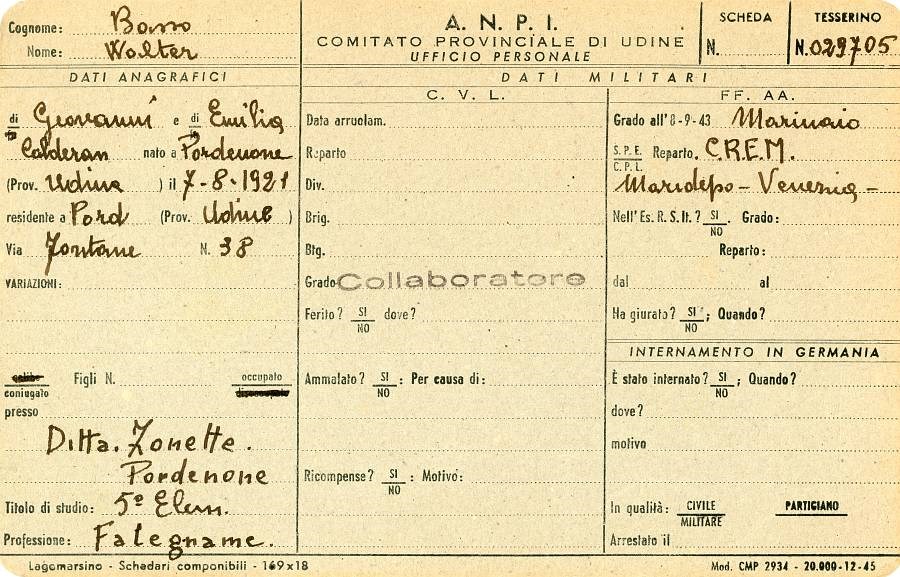 Cognome: Basso
Nome: Walter
A. N. P. I.
COMITATO PROVINCIALE DI UDINE
UFFICIO PERSONALE
SCHEDA
N.
TESSERINO
N. 029705
DATI ANAGRAFICI
DATI MILITARI
di Geovanni e di Emilia
Calderan nato a Pordenone
(Prov. Udine ) il 7-8-1921
residente a Pord (Prov. Udine )
Via Fontane N. 38
VARIAZIONI:
celibe
coniugato
Figli N.
occupato
disoccupato
presso
Ditta. Zonette.
Pordenone
Titolo di studio: 5ª Elem.
Professione: Falegname.
C. V. L.
Data arruolam.
Reparto
Div.
Brig.
Btg.
Grado Collaboratore
Ferito? SI NO dove?
Ammalato? SI NO : Per causa di:
Ricompense? SI NO : Motivo:
FF. AA.
Grado all'8-9-43 Marinaio
S. P. E. C. P. L. Reparto. C.R.E.M.
Maridepo - Venezia -
Nell'Es. R. S. It.? SI NO . Grado:
Reparto:
dal al
Ha giurato? SI NO ; Quando?
INTERNAMENTO IN GERMANIA
È stato internato? SI NO ; Quando?
dove?
motivo
In qualità: CIVILE MILITARE PARTIGIANO
Arrestato il
Lagomarsino - Schedari componibili - 169x18
Mod. CMP 2934 - 20.000-12-45